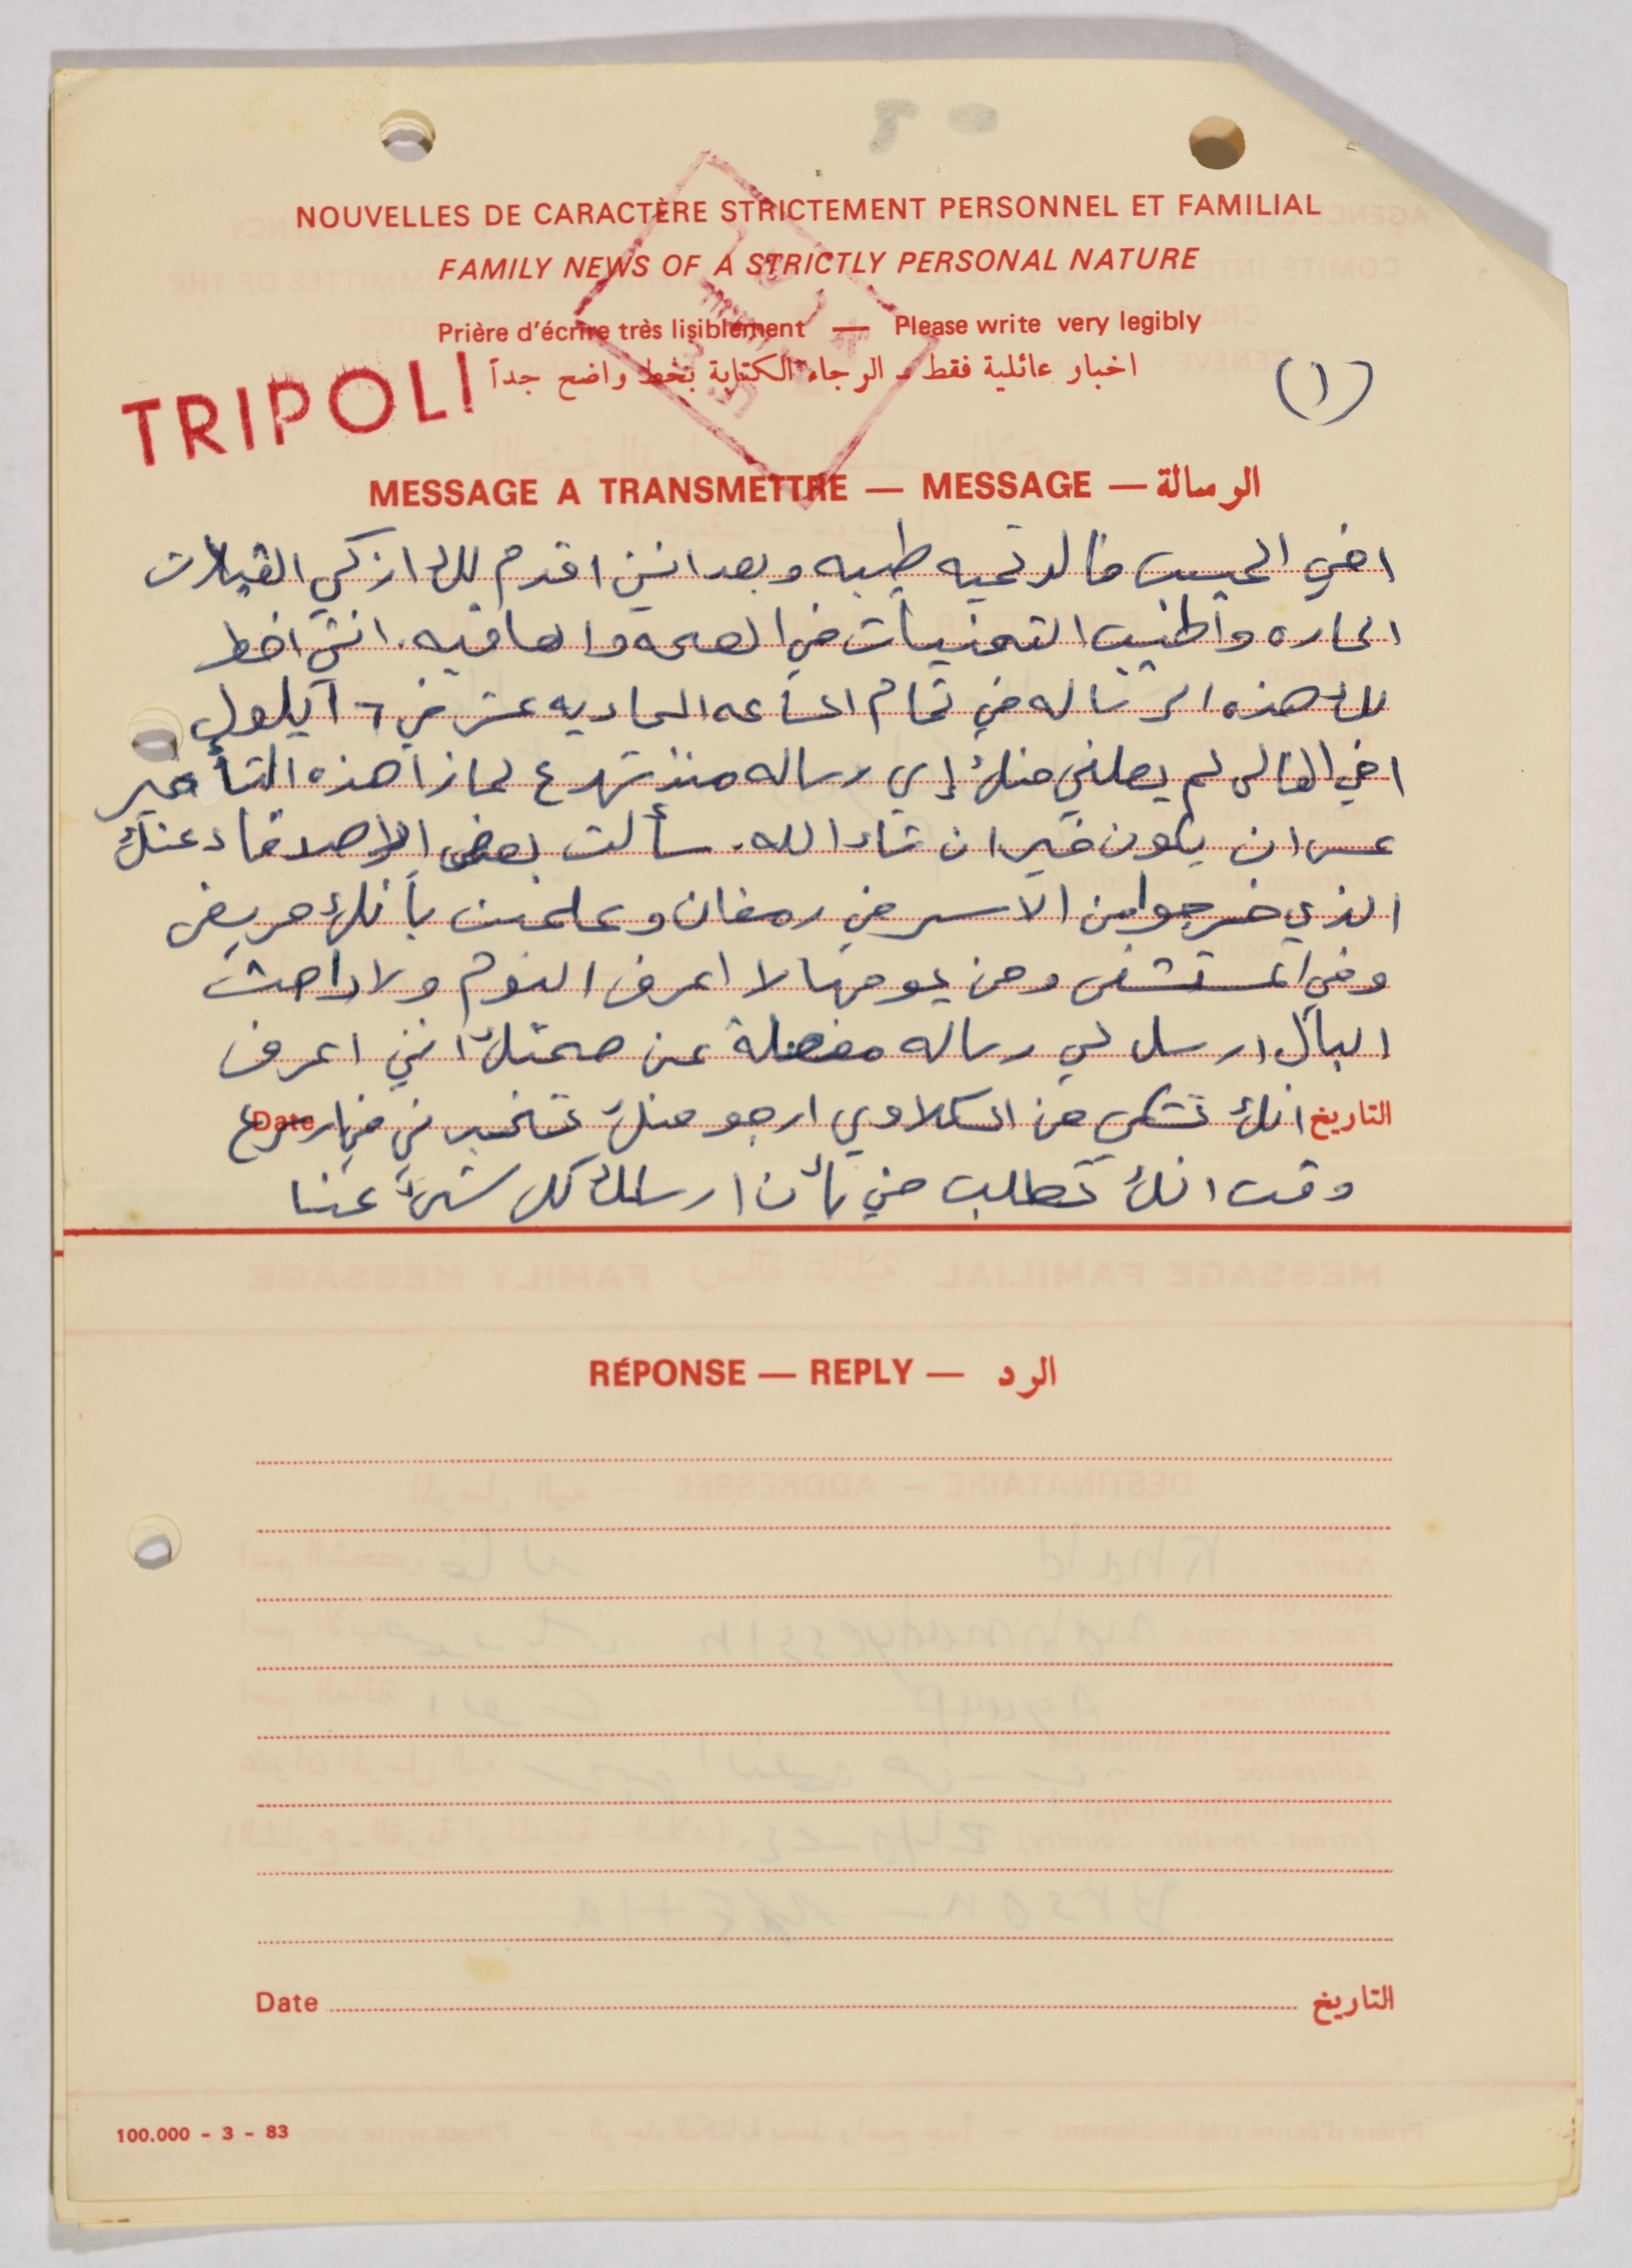 NOUVELLES DE CARACTÈRE STRICTEMENT PERSONNEL ET FAMILIAL
FAMILY NEWS OF A STRICTLY PERSONAL NATURE
Prière d'écrire très lisiblement — Please write very legibly
اخبار عائلية فقط - الرجاء الكتابة بخط واضح جداً
(١)
TRIPOLI
MESSAGE A TRANSMETTRE — MESSAGE — الرسالة
اخي الحبيب خالد تحيه طيبه وبعد انني اقدم لك ازكى القبلات
الحاره واطيب التمنيات في الصحه والعافيه. انني اخط
لك هذه الرساله في تمام الساعه الحاديه عشر في ٦ أيلول
اخي الغالي لم يصلني منك إي رساله منذ شهر ع لماذا هذه التأخير
عسى ان يكون خير ان شاء الله. سألت بعض الإصدقاء عنك
الذي خرجوا من الأسر في رمضان وعلمت بأنك مريض
وفي المستشفى ومن يومها لا اعرف النوم ولا راحت
البال ارسل لي رساله مفصلة عن صحتك انني اعرف
التاريخ انك تشكي من الكلاوي ارجو منك تخبرني في اسرع Date
وقت انك تطلب مني بأن ارسلك كل شيء عنا
RÉPONSE — REPLY — الرد
Date التاريخ
100.000 - 3 - 83